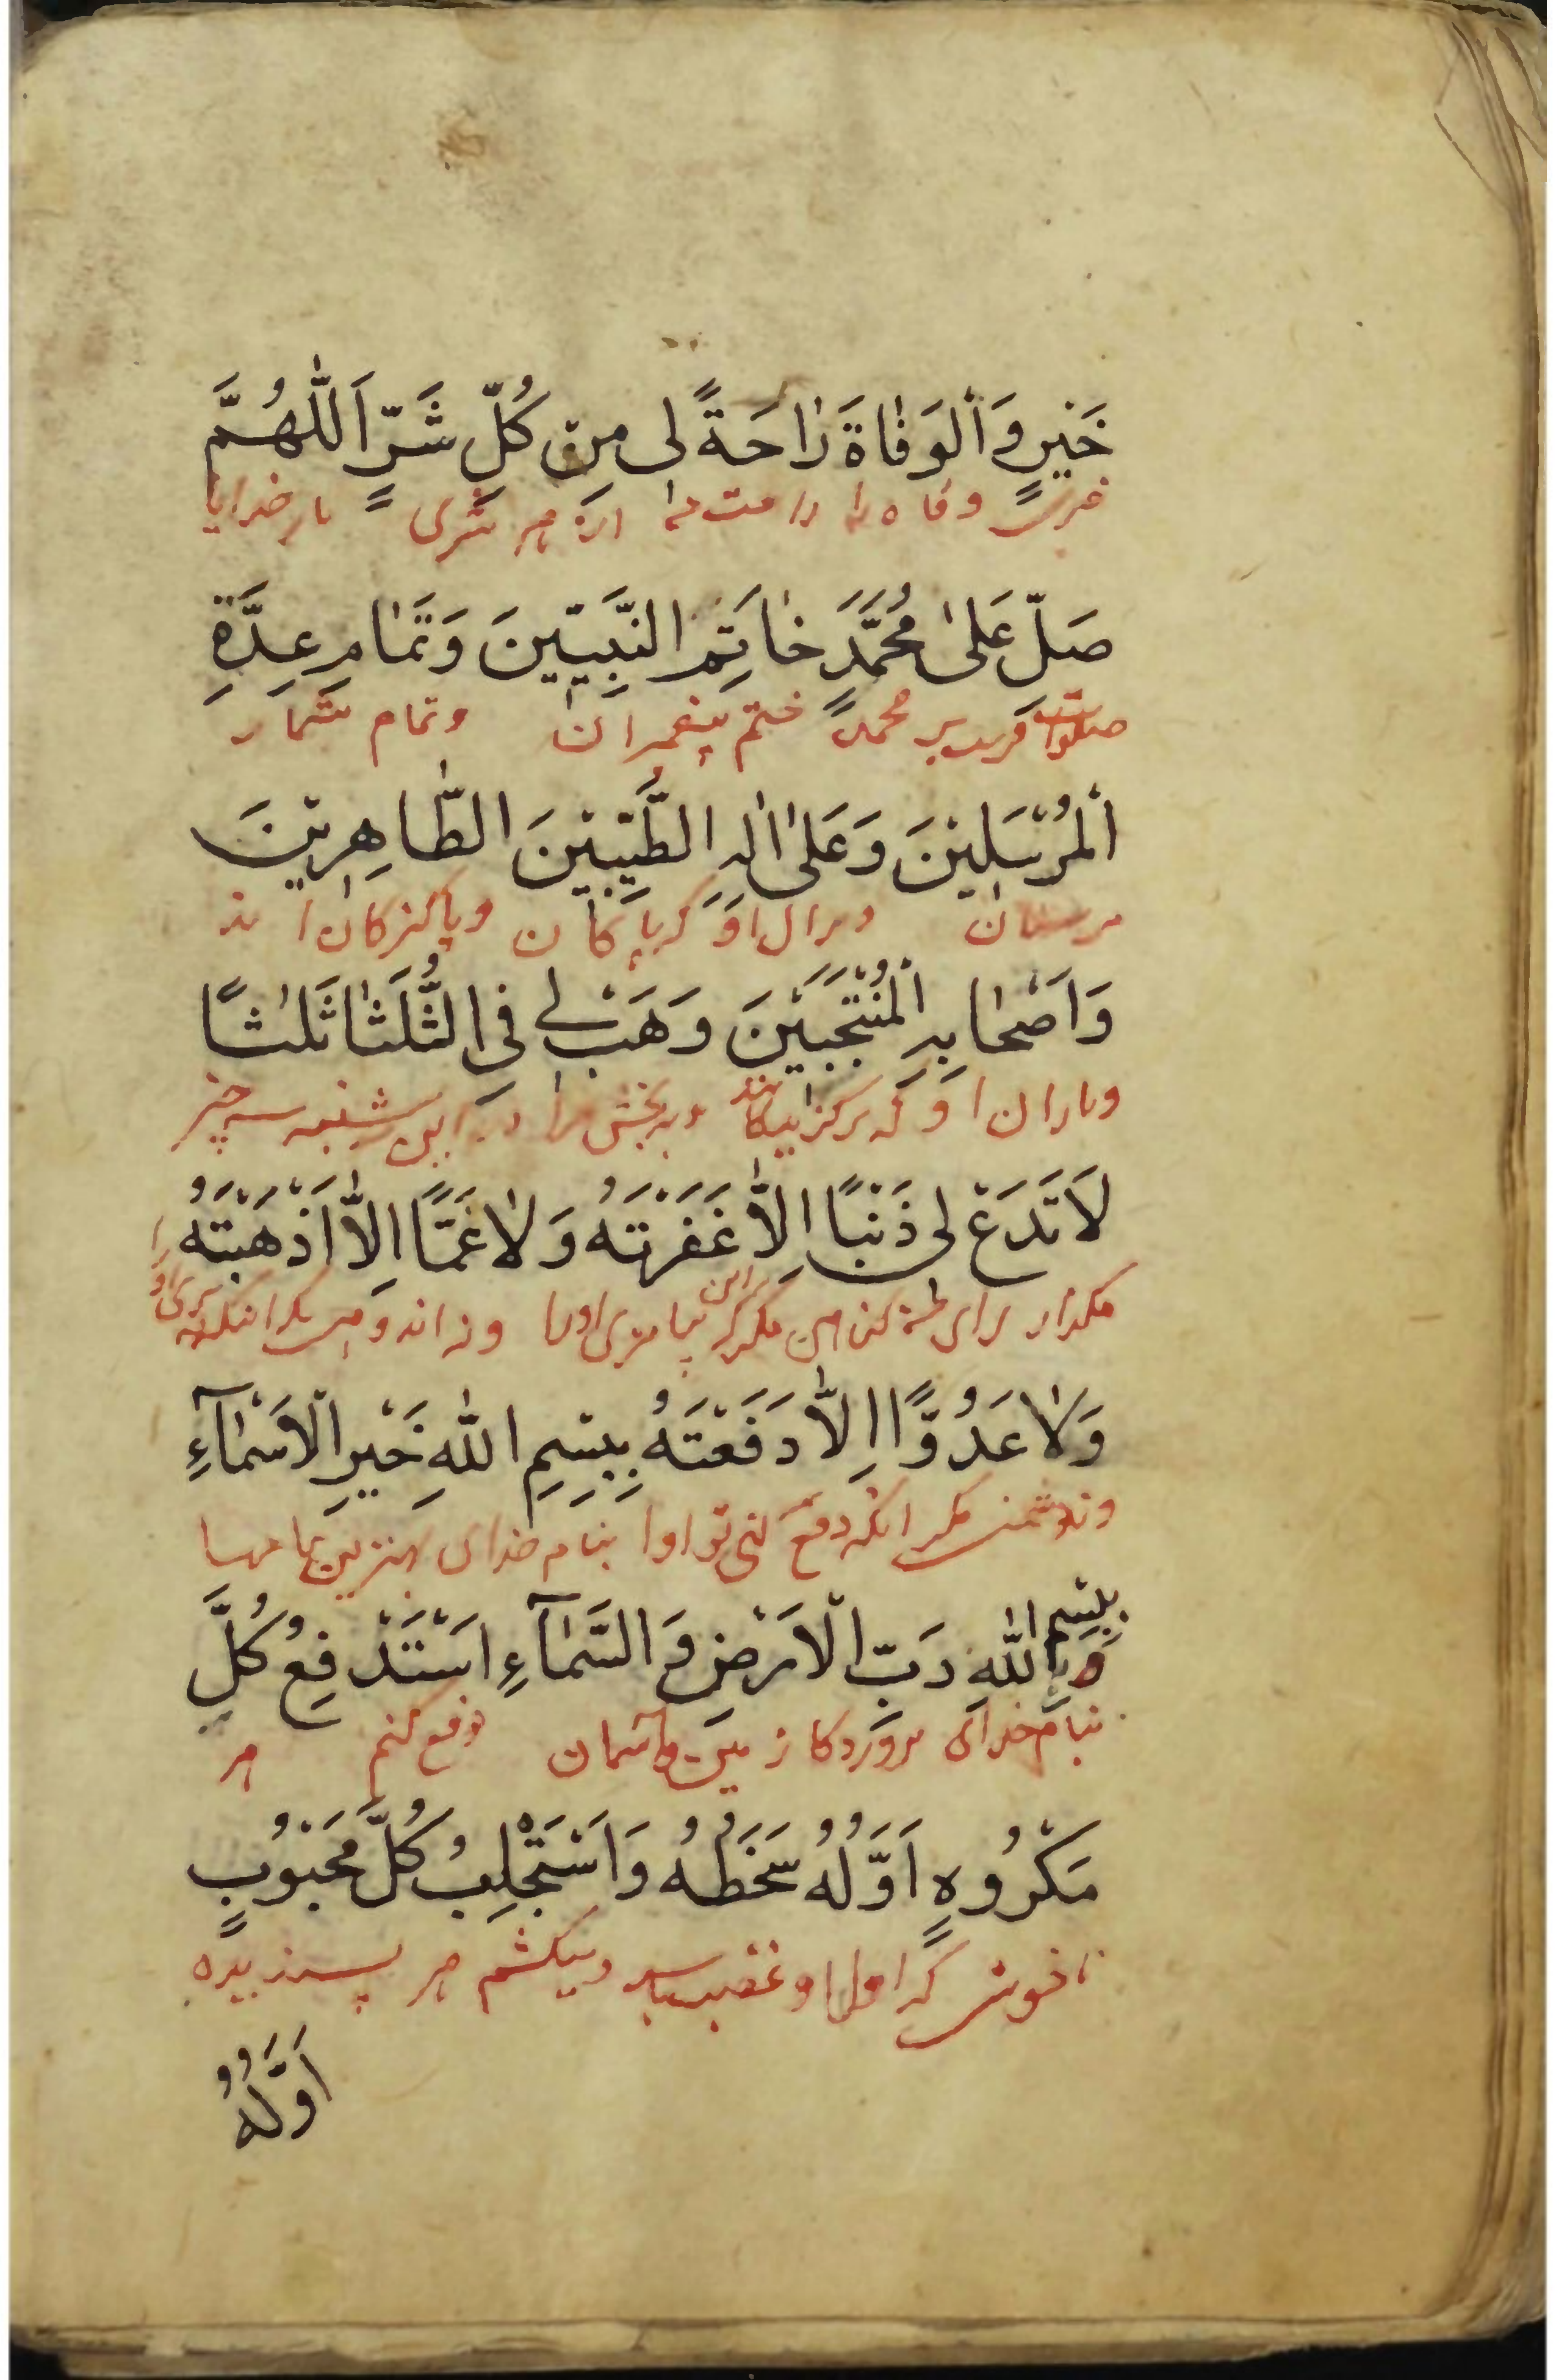 خَيْرٍ وَاَلْوَفٰاةَ رٰاحَةً لى مِنْ كُلِّ شَرٍّ اَللّٰهُمَّ
وفاه را راحت از هر شرى بار خدايا
صَلِّ عَلىٰ مُحَمَّدٍ خٰاتِمِ النَّبِيّينَ وَتَمٰامِ عِدَّةِ
صلوات بر محمد ختم پيغمبران وتمام شمار
اَلْمُرْسَلينَ وَعَلىٰ اٰلِهِ الطَّيِّبينَ الطّٰاهِرينَ
وبر ال او كه پاكان و پاكيزكان اند
وَاَصْحٰابِهِ الْمُنْتَجَبَينَ وَهَبْ لى فِى الثُّلَثٰا ثَلٰثًا
وياران او كه بركزيدكانند و به بخش مرا در اين سه شنبه سه چيز
لاَ تَدَعْ لى ذَنْبًا اِلاّٰ غَفَرْتَهُ وَلاٰ غَمًّا اِلاّٰ اَذْهَبْتَهُ
مكذار براى من مكر بيامرزى اورا ونه اندوهى مكر انكه برى او را
وَلاٰ عَدُوًّا اِلاّٰ دَفَعْتَهُ بِبِسْمِ اللّٰهِ خَيْرِ الْاَسْمٰآءِ
ونه دشمنى مكر انكه دفع كنى تو اورا بنام خداى بهترين نامها
بِبِسْمِ اللّٰهِ رَبِّ الْاَرْضِ وَالسَّمٰآءِ اَسْتَدْفِعُ كُلَّ
بنام خداى پروردكار زمين و آسمان دفع كنم هر
مَكْرُوهٍ اَوَّلُهُ سَخَطُهُ وَاَسْتَجْلِبُ كُلَّ مَحْبُوبٍ
ناخوش كه اول او غضب باشد وميكشم هر پسنديده
اَوَّلُهُ